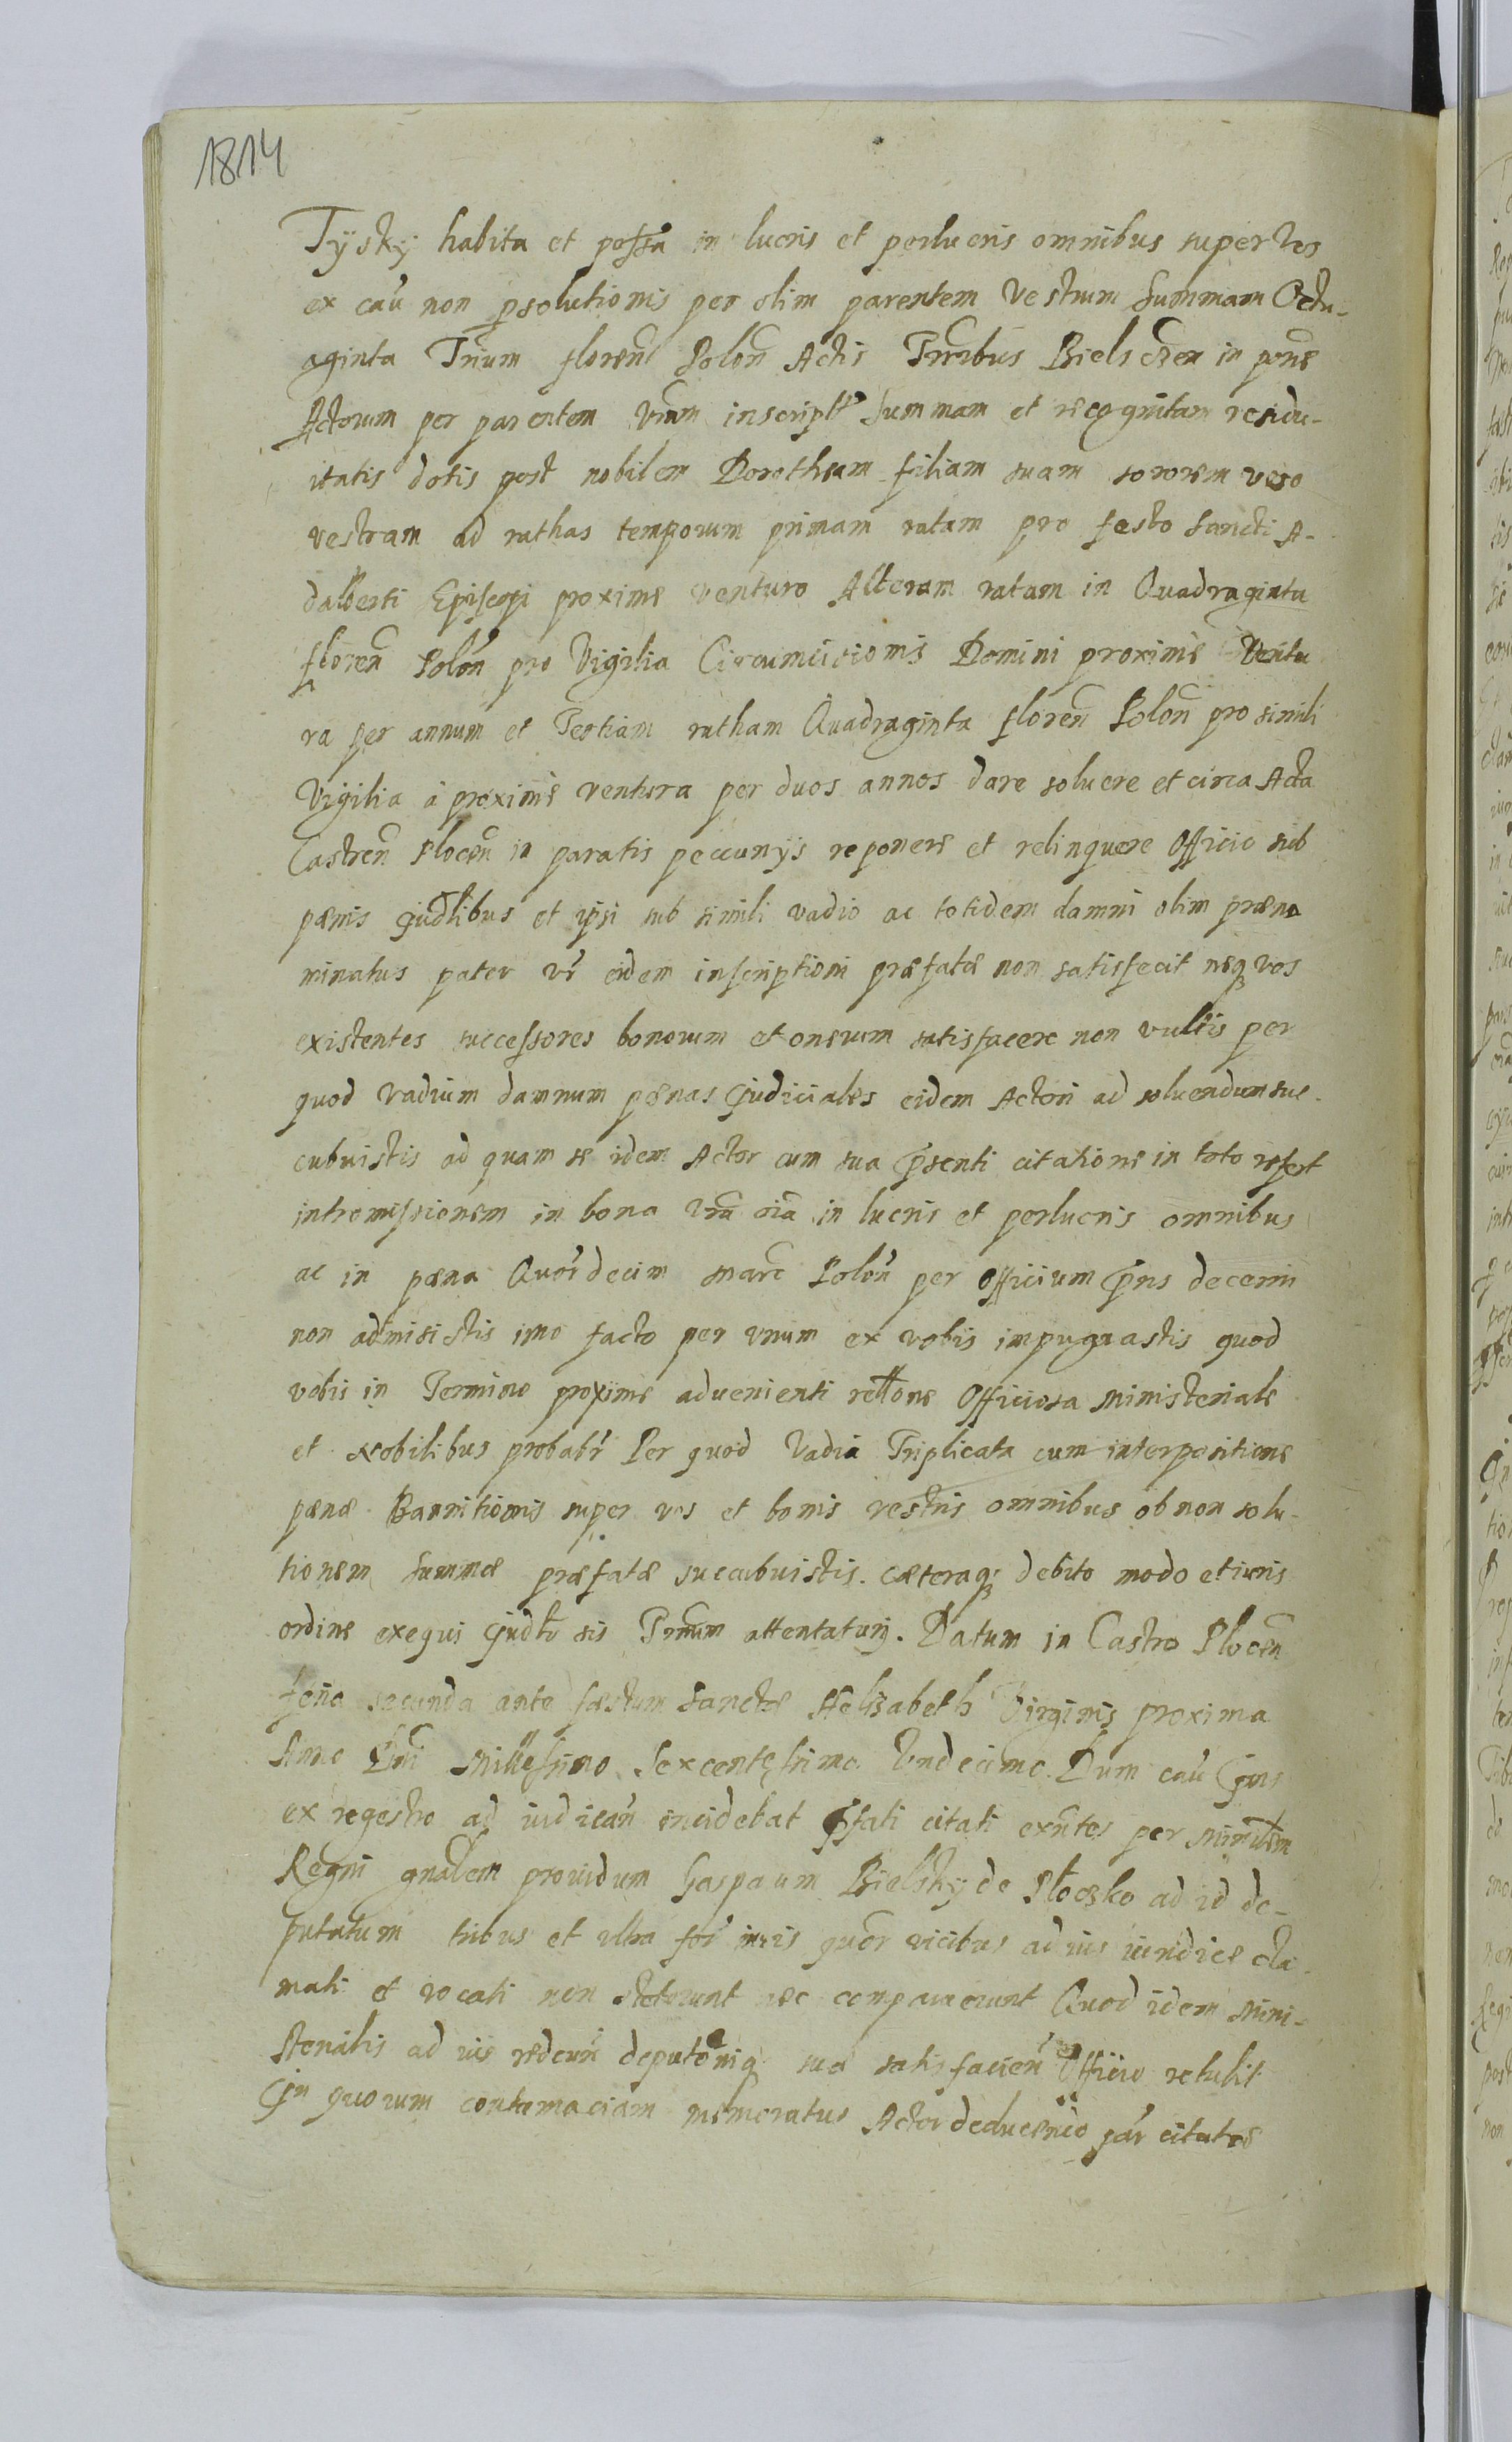 1814
Tÿsky habita et possa in lucris et perlucris omnibus super Vos
ex cau non psolutionis per olim parentem Vestrum Summam Octu-
aginta Trium floren Polon Actis Trrñbus Bielscen in psone
Actorum per parentem Vrum inscript Summam et recognitam residu-
itatis dotis post nobilem Dorotheam filiam suam sororem vero
vestram ad rathas temporum primam ratam pro festo Sancti A-
dalberti Episcopi proxime venturo Alteram ratam in Quadraginta
floreñ Poloñ pro Vigilia Circumcisionis Domini proxime Ventu
ra per annum et Tertiam ratham Quadraginta floreñ Poloñ pro simili
Vigilia à proxime ventura per duos annos dare soluere et circa Acta
Castreñ Ploceñ in paratis peccunijs reponere et relinquere Officio sub
pænis Judlibus et ipsi sub simili vadio ac totidem damni olim præno
minatus pater vr eidem inscriptioni præfatæ non satisfecit neq vos
existentes successores bonorum et onerum satisfacere non vultis per
quod vadium damnum pænas Judiciales eidem Actori ad soluendum suc-
cubuistis ad quam se idem Actor cum sua psenti citatione in toto refert
intromissionem in bona vra oia in lucris et perlucris omnibus
ac in pæna Quordecim marc Poloñ per Officium pns decerni
non admisistis imo facto per vnum ex vobis impugnastis quod
vobis in Termino proxime aduenienti rettone Officiosa Ministeriale
et Nobilibus probabr Per quod Vadia Triplicata cum interpositione
pænæ Bannitionis super vos et bonis vestris omnibus ob non solu-
tionem Summæ præfatæ succubuistis. cæteraq debito modo et iuris
ordine exequi Judtr sis Trmum attentaturj. Datum in Castro Ploceñ
feria secunda ante festum Sanctæ Helisabeth Virginis proxima
Anno Dni Millesimo Sexcentesimo Vndecimo. Dum cau pns
ex regestro ad iudicañ incidebat pfati citati exñtes per Minrlem
Regni gnalem prouidum Gasparum Bielsky de Plocsko ad id de-
putatum tribus et vltra for iuris quor vicibus ad ius iuridice cla-
mati et vocati non steterunt nec comparuerunt Quod idem Mini-
sterialis ad ius reddeñ deputoniq suæ satisfacieñ Officio retulit
In quorum contumaciam memoratus Actor deducendo par citatæ